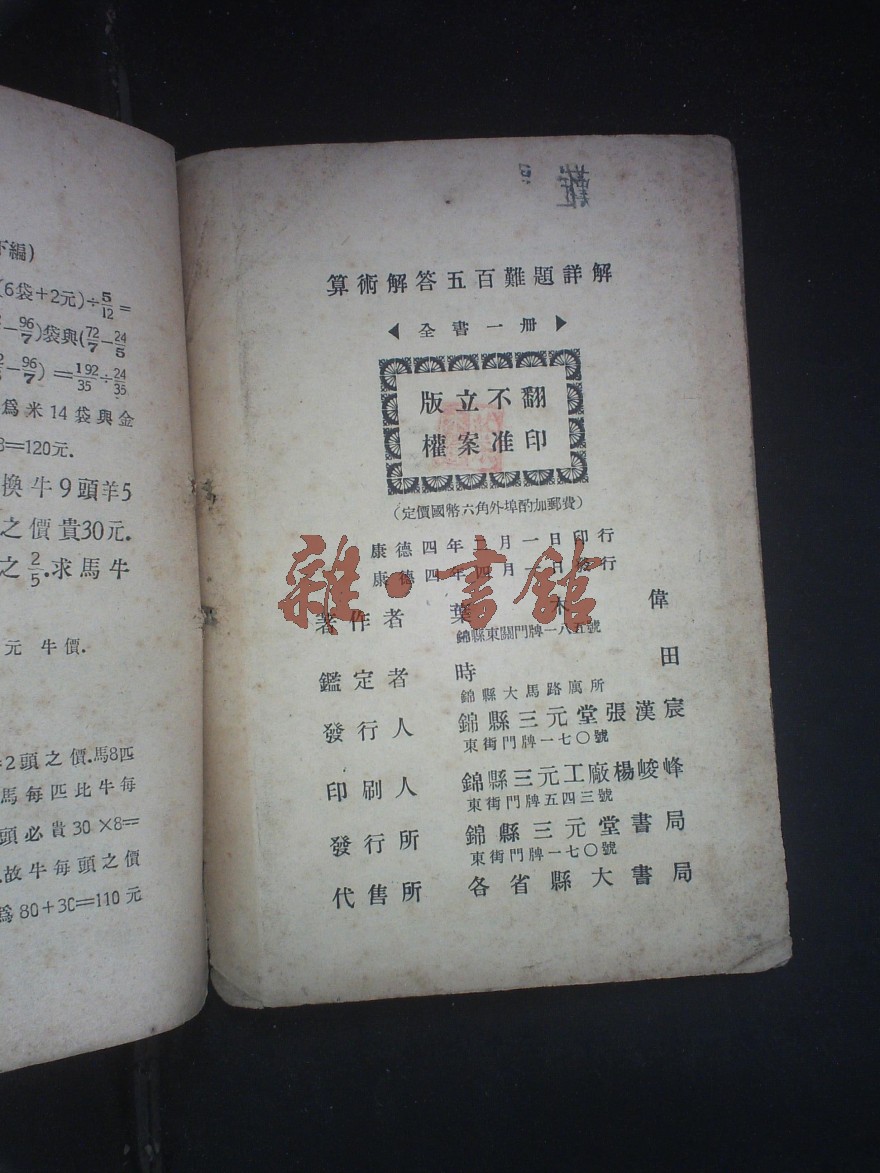 下編)
(6袋+2元)÷5/12=
-96/7)袋與(72/7-24/5
-96/7)=192/35÷24/35
爲米14袋與金
8=120元.
換牛9頭羊5
之價貴30元.
之2/5.求馬牛
元 牛價.
=2頭之價.馬8匹
馬每匹比牛每
頭必貴30×8=
故牛每頭之價
爲80+30=110元
難
算術解答五百難題詳解
◀全書一册▶
翻不立版
印准案權
(定價國幣六角外埠酌加郵費)
康德四年 月一日印行
康德四年四月一日發行
著作者 葉 偉
錦縣東關門牌一八五號
鑑定者 時田
錦縣大馬路寓所
發行人 錦縣三元堂張漢宸
東街門牌一七〇號
印刷人 錦縣三元工廠楊峻峰
東街門牌五四三號
發行所 錦縣三元堂書局
東街門牌一七〇號
代售所 各省縣大書局
雜·書館